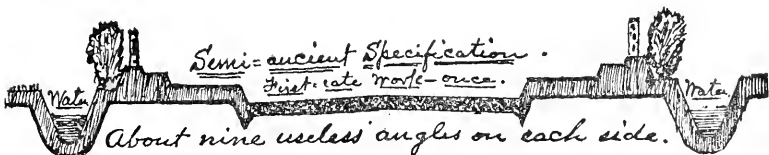 Semi-ancient Specification.
First-rate work-once.
Water Water
About nine useless angles on each side.